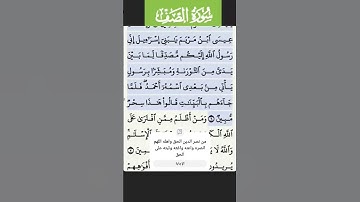 سُورَةُ الصَّفِّ
عِيسَى ٱبْنُ مَرْيَمَ يَٰبَنِىٓ إِسْرَٰٓءِيلَ إِنِّى
رَسُولُ ٱللَّهِ إِلَيْكُم مُّصَدِّقًا لِّمَا بَيْنَ
يَدَىَّ مِنَ ٱلتَّوْرَىٰةِ وَمُبَشِّرًۢا بِرَسُولٍ
يَأْتِى مِنۢ بَعْدِى ٱسْمُهُۥٓ أَحْمَدُ ۖ فَلَمَّا
جَآءَهُم بِٱلْبَيِّنَٰتِ قَالُوا۟ هَٰذَا سِحْرٌ
مُّبِينٌ ٦ وَمَنْ أَظْلَمُ مِمَّنِ ٱفْتَرَىٰ عَلَى
ٱللَّهِ ٱلْكَ
ٱلْإِسْلَٰمِ
وَٱللَّهُ لَا
مِينَ ٧
من نصر الدين الحق واهله اللهم
الحق
يُرِيدُو
أَفْوَٰهِهِمْ